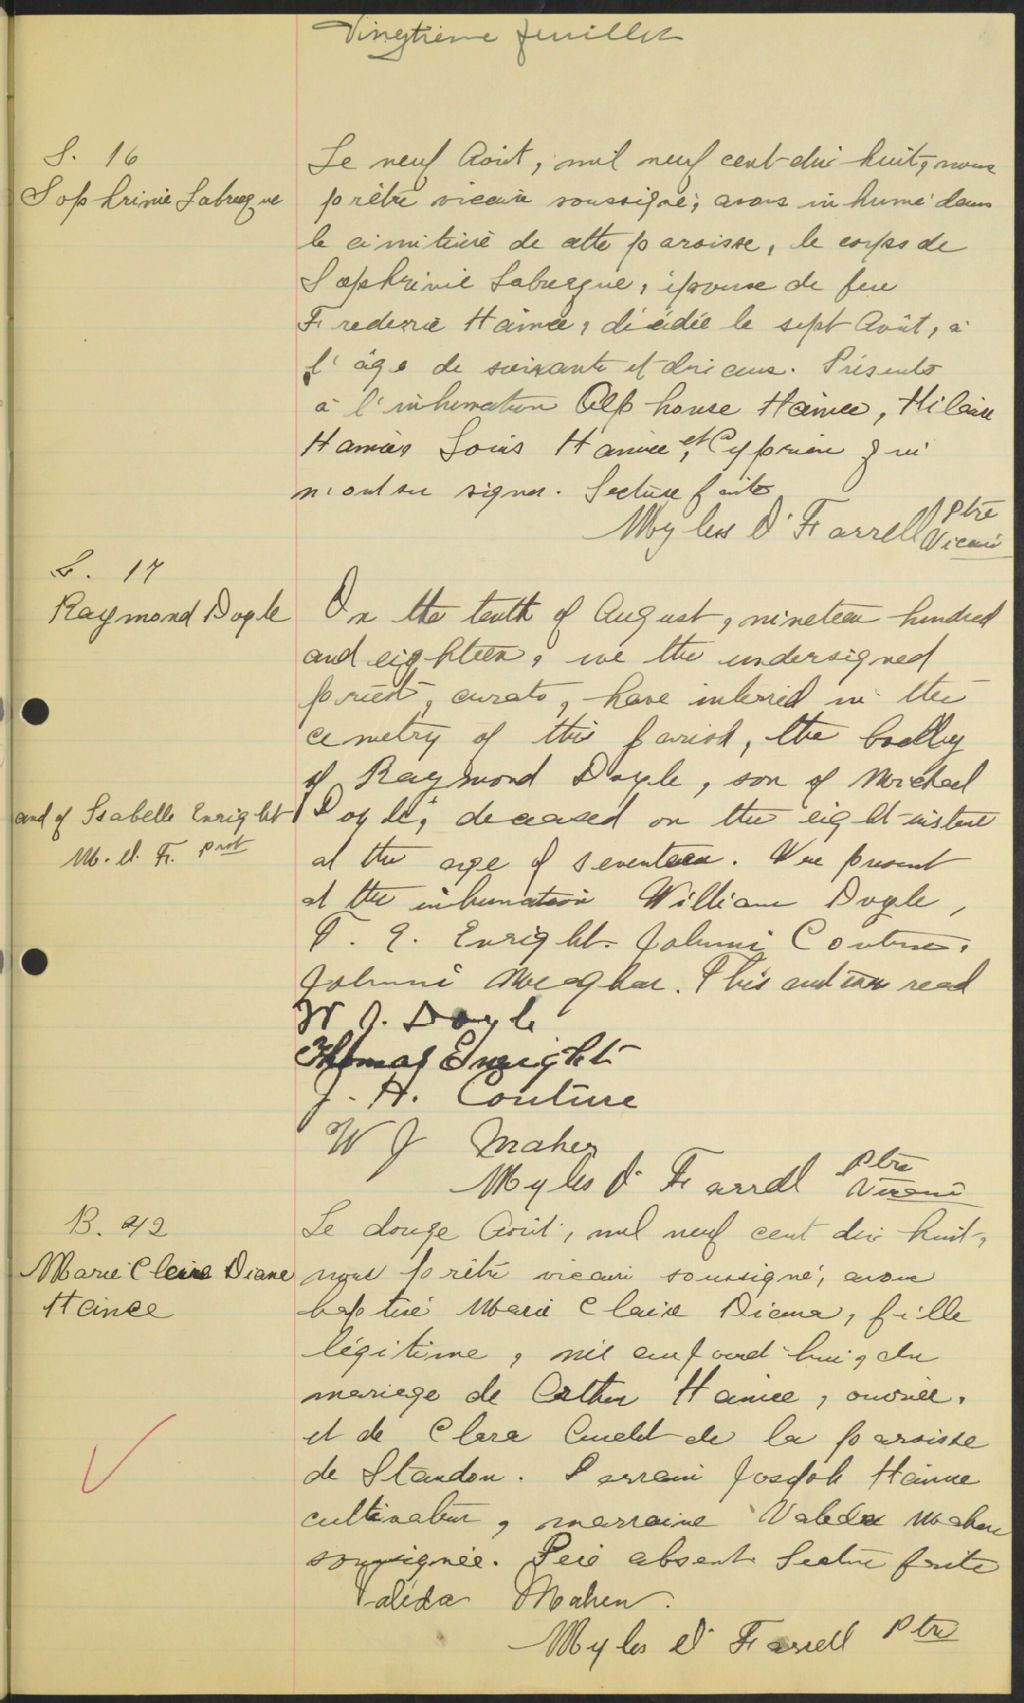 Vingtième feuillet
S. 16
Sophrinie Labrecque
Le neuf Août, mil neuf cent dix huit, nous
prêtre vicaire soussigné, avons inhumé dans
le cimitière de cette paroisse, le corps de
Sophrinie Labrecque, épouse de feu
Frederic Hamee, décédée le sept Août, à
l'âge de soixante et dix ans. Présents
à l'inhumation Alphonse Hainee, Hilaire
Louis et Cyprien qui
n'ont su signer. Lecture faite
Myles D. Farrell Ptre
Vicaire
S. 17
Raymond Doyle
On the tenth of August, nineteen hundred
and eighteen, we the undersigned
priest, curate, have interred in the
cemetry of this parish, the body
of Raymond Doyle, son of Michael
and of Isabelle Enright
M. d. F. prst
Doyle, deceased on the eight instant
at the age of seventeen. Were present
at the inhumation William Doyle,
T. E. Enright. Johnni Couture,
Johnni Meagher. This read
W J. Doyle
Thomas Enright
J. H. Couture
W J Maher
Myles D. Farrell Ptre
Vicaire
B. 42
Marie Claire Diane
Haince
Le douze Août, mil neuf cent dix huit,
nous prêtre vicaire soussigné, avons
baptisé Marie Claire Diana, fille
légitime, née aujourd'hui, du
mariage de Arthur Hainee, ouvrier,
et de Clara Audet de la paroisse
de Standon. Parrain Joseph Hainee
cultivateur, marraine Valeda Maheu
soussignée. Père absent. Lecture faite
Valéda Maheu.
Myles D. Farrell Ptre